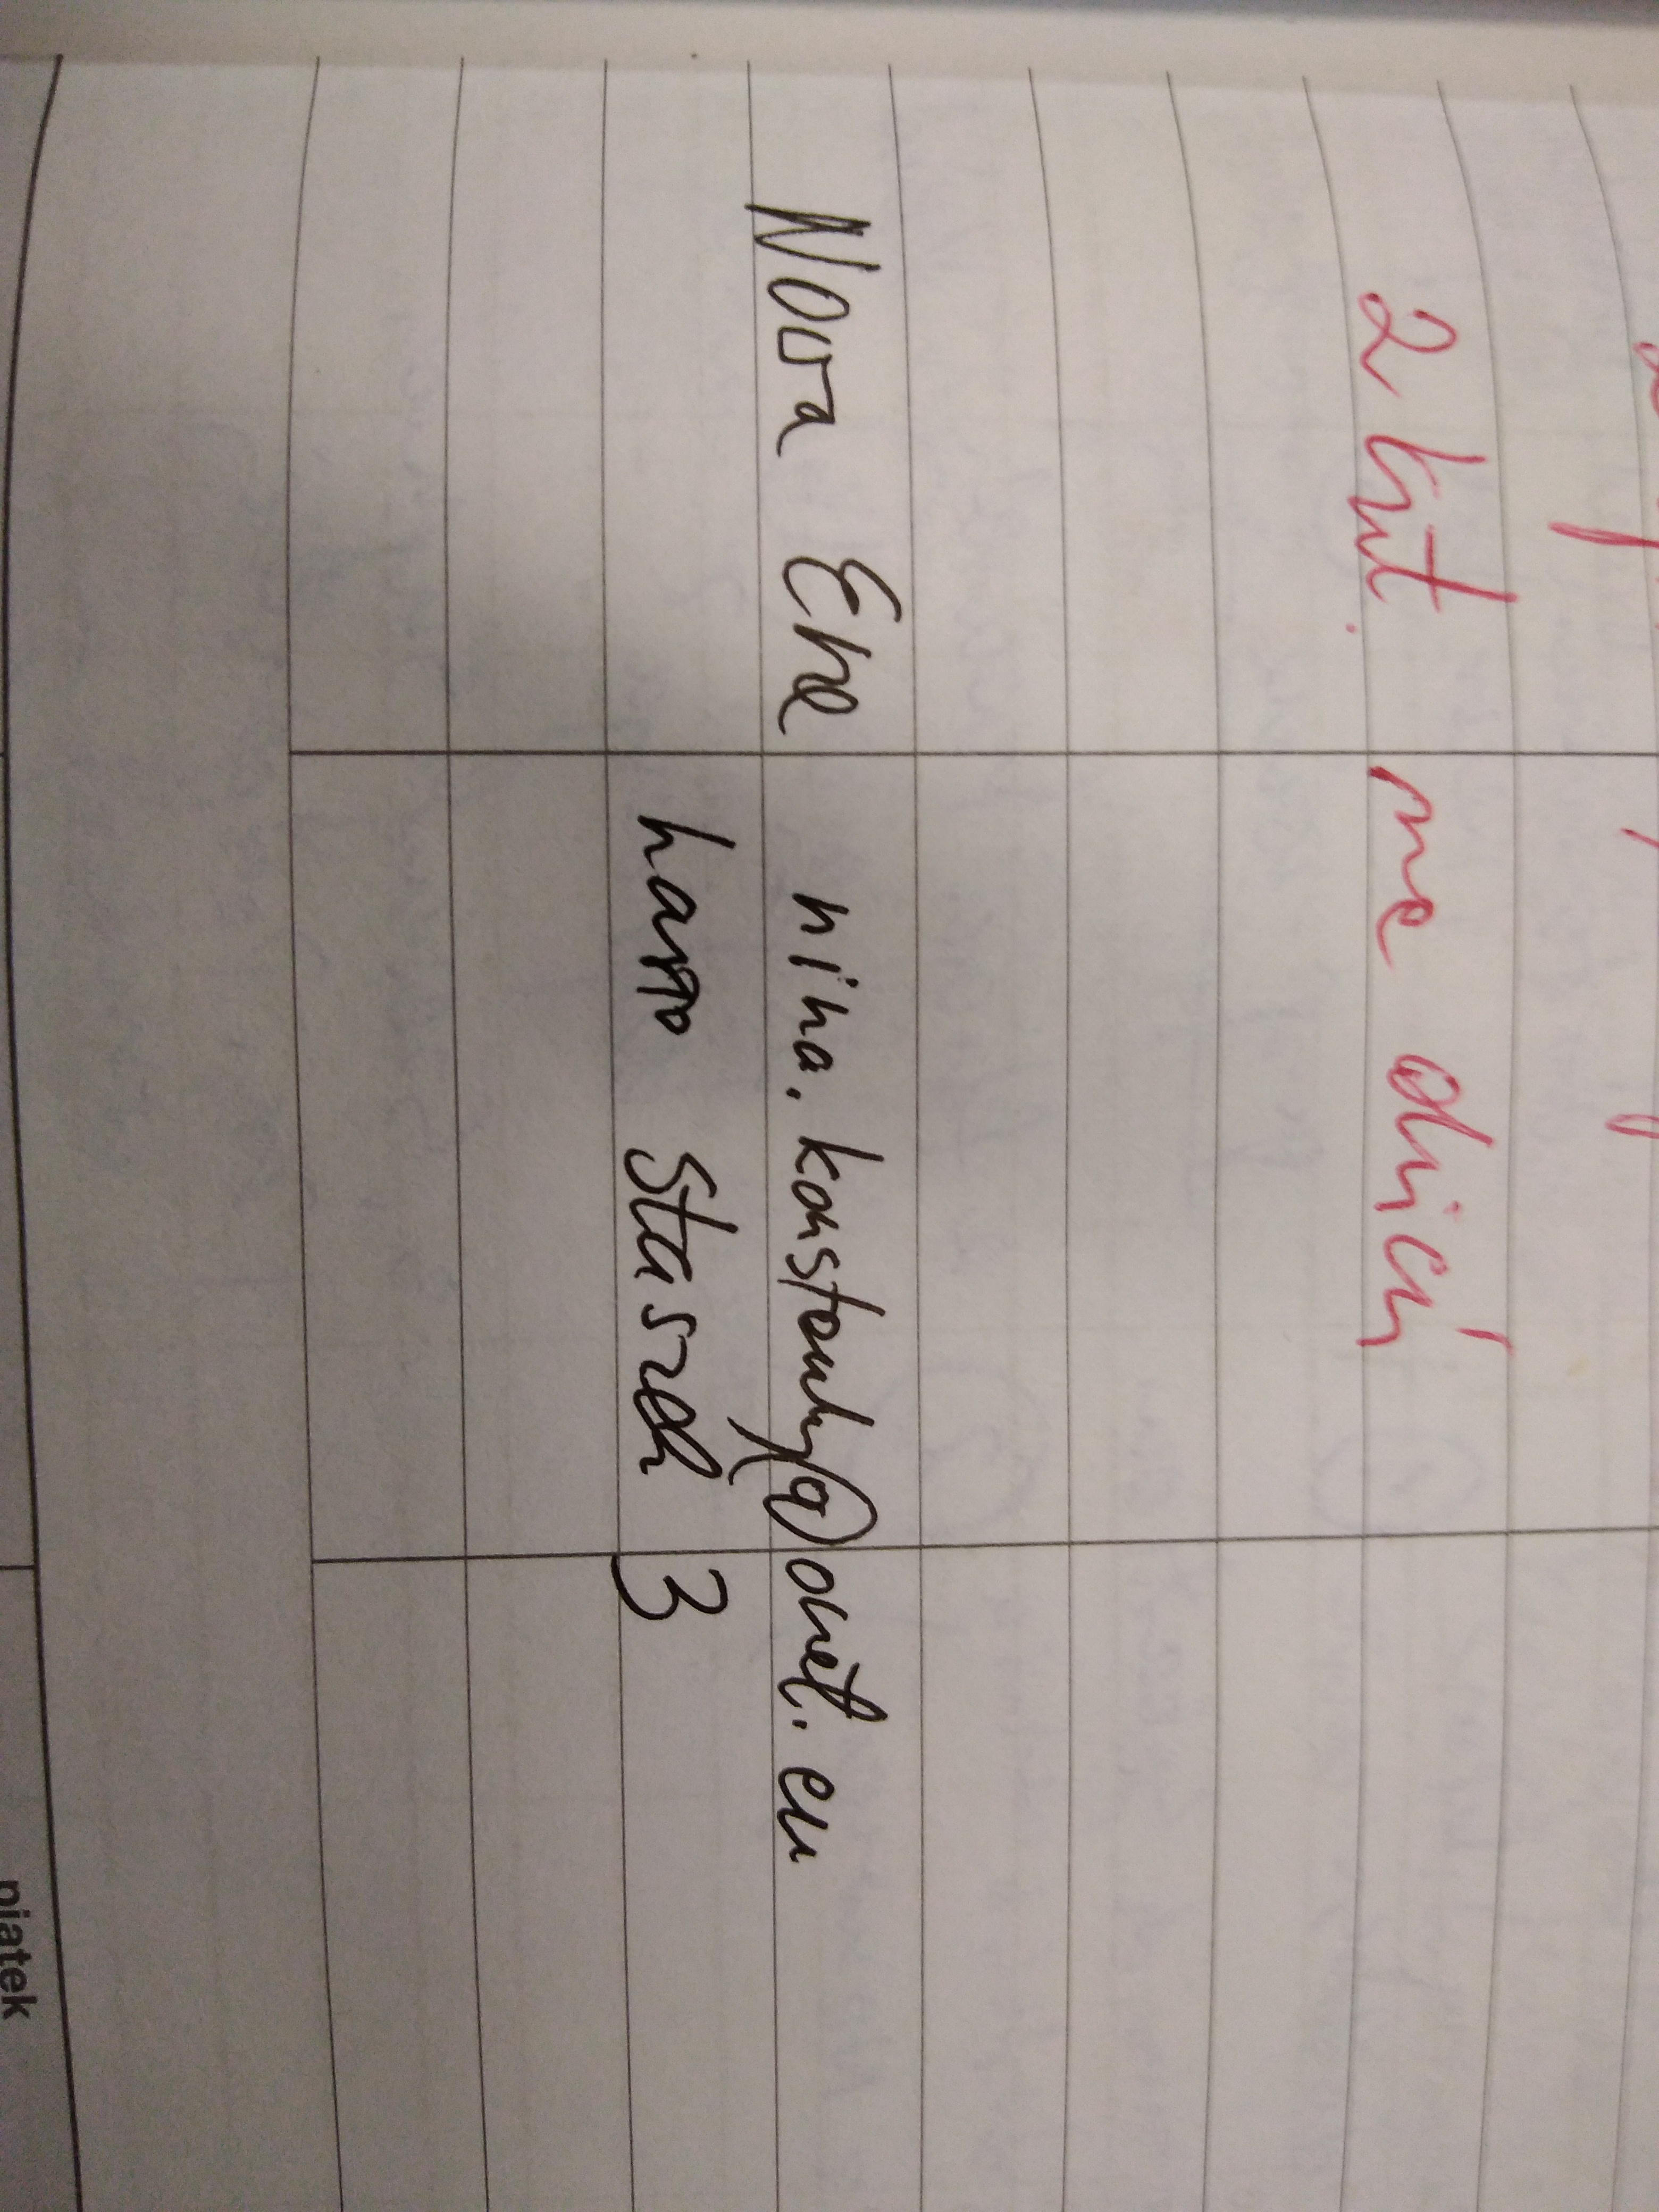 2 kwt. na dzień
Nowa Era nina.konstanty@onet.eu
hasło Staszek 3
piątek